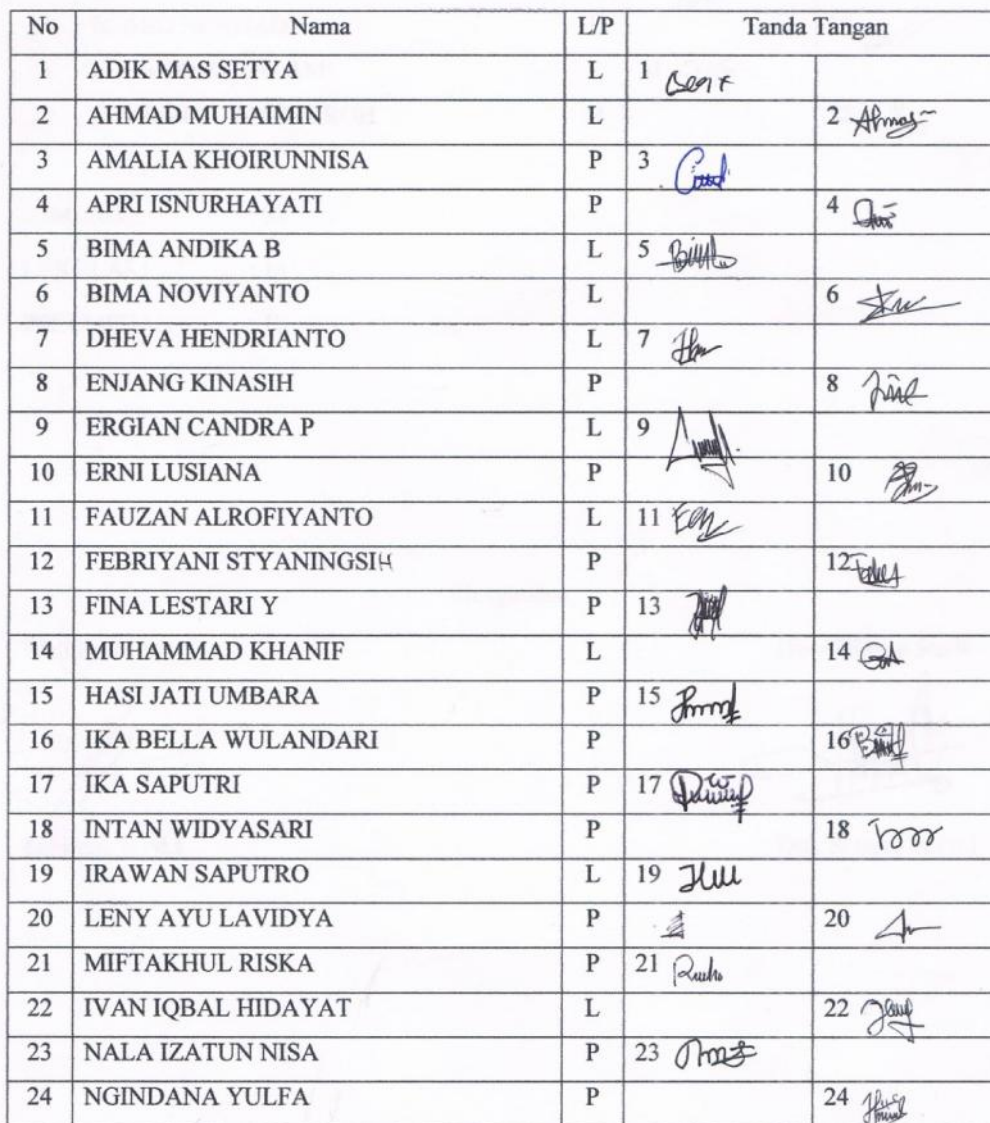 No Nama L/P Tanda Tangan
1 ADIK MAS SETYA L 1
2 AHMAD MUHAIMIN L 2 Ahmad
3 AMALIA KHOIRUNNISA P 3
4 APRI ISNURHAYATI P 4
5 BIMA ANDIKA B L 5
6 BIMA NOVIYANTO L 6
7 DHEVA HENDRIANTO L 7
8 ENJANG KINASIH P 8
9 ERGIAN CANDRA P L 9
10 ERNI LUSIANA P 10
11 FAUZAN ALROFIYANTO L 11
12 FEBRIYANI STYANINGSIH P 12
13 FINA LESTARI Y P 13
14 MUHAMMAD KHANIF L 14
15 HASI JATI UMBARA P 15
16 IKA BELLA WULANDARI P 16
17 IKA SAPUTRI P 17
18 INTAN WIDYASARI P 18
19 IRAWAN SAPUTRO L 19
20 LENY AYU LAVIDYA P 20
21 MIFTAKHUL RISKA P 21
22 IVAN IQBAL HIDAYAT L 22
23 NALA IZATUN NISA P 23
24 NGINDANA YULFA P 24